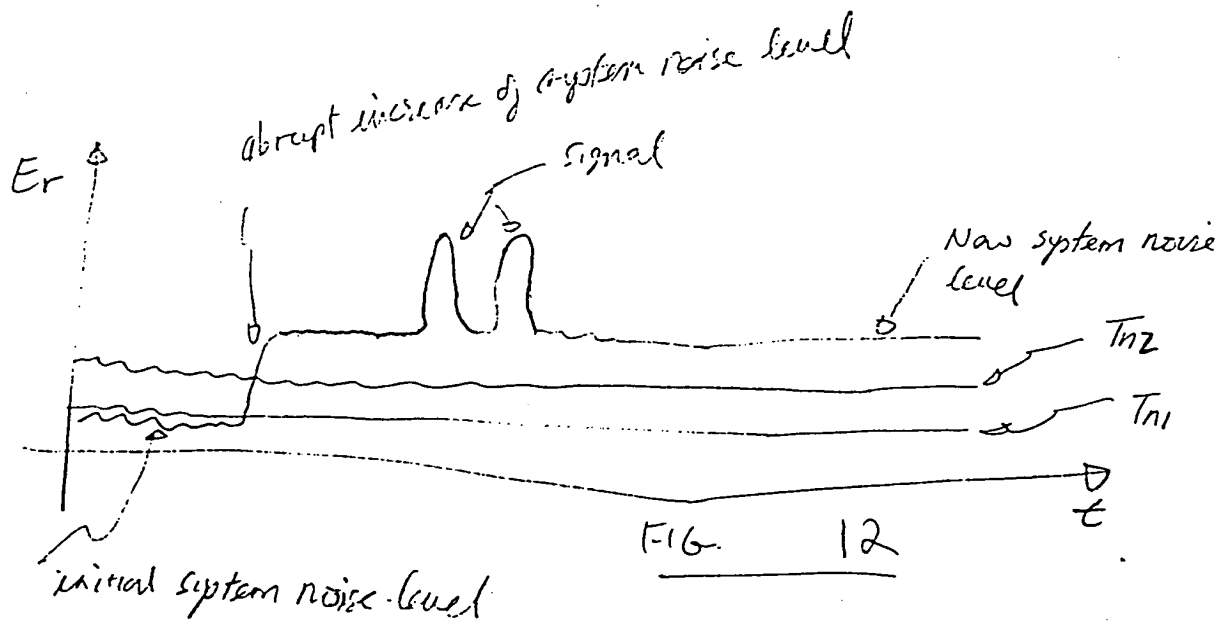 abrupt increase of system noise level
Er
signal
New system noise
level
Tn2
Tn1
t
FIG. 12
initial system noise level